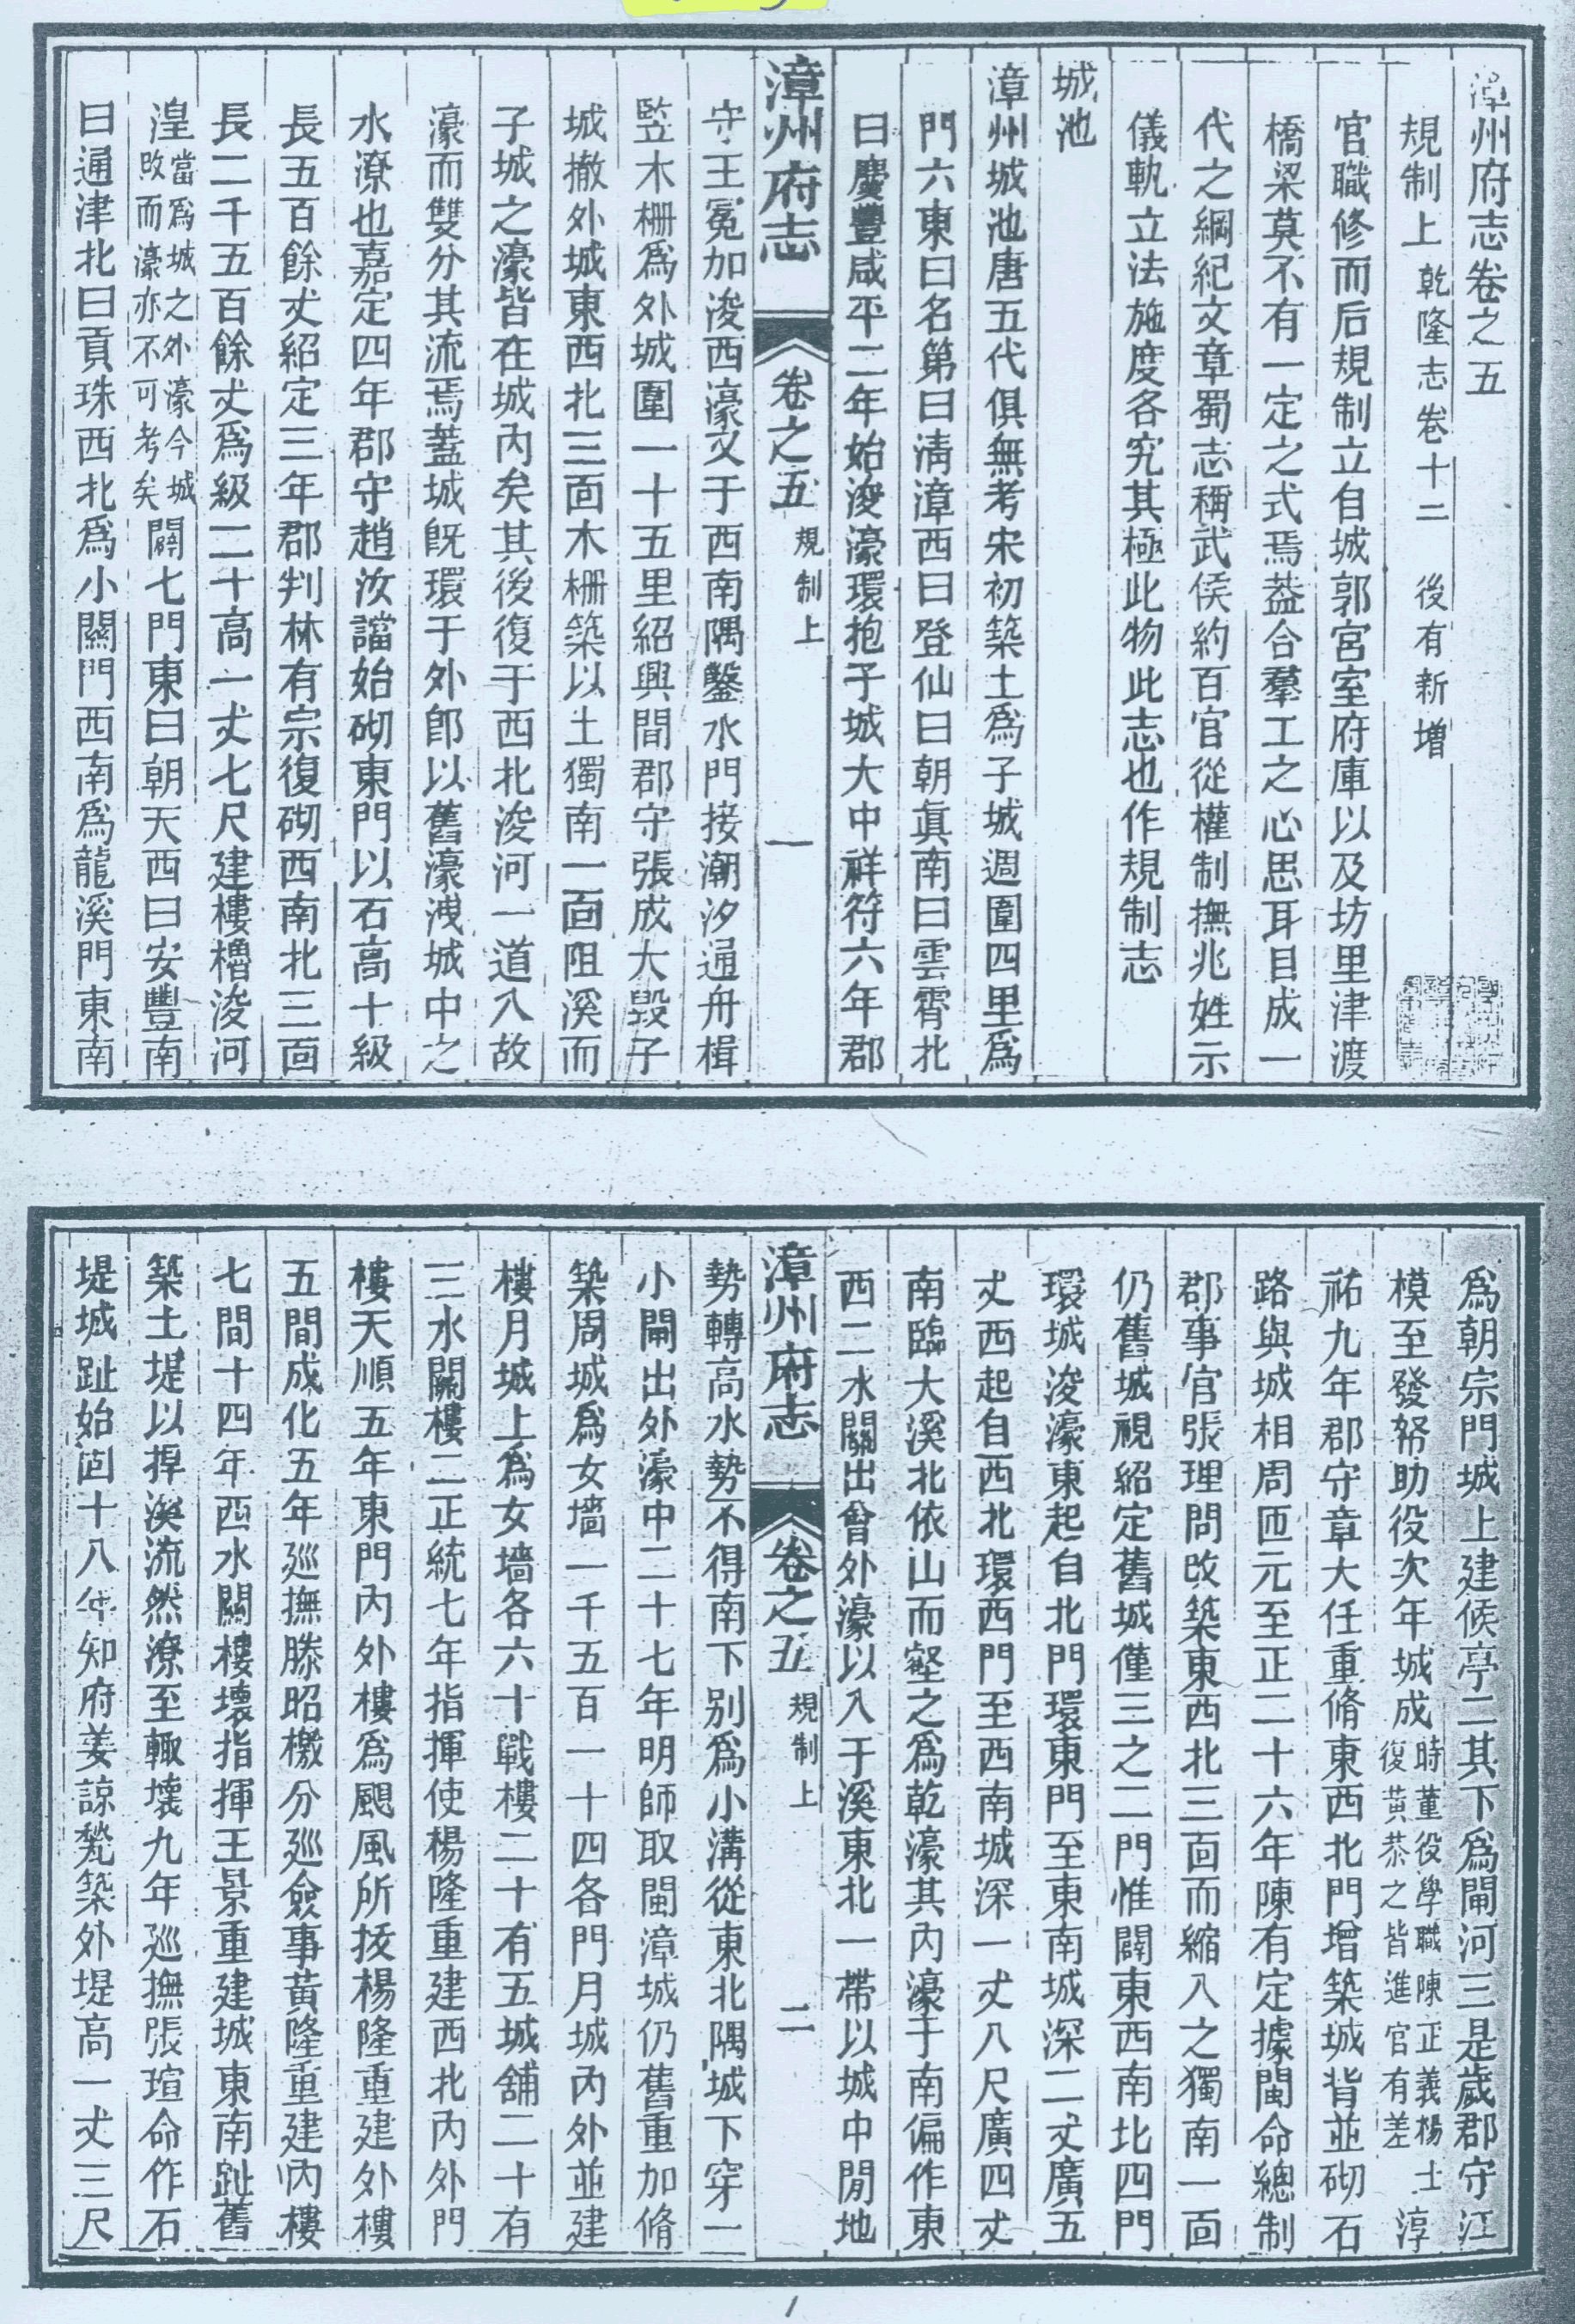 漳州府志卷之五
規制上 乾隆志卷十二 後有新增
官職修而后規制立自城郭宮室府庫以及坊里津渡
橋梁莫不有一定之式焉葢合羣工之心思耳目成一
代之綱紀文章蜀志稱武侯約百官從權制撫兆姓示
儀軌立法施度各究其極此物此志也作規制志
城池
漳州城池唐五代俱無考宋初築土爲子城週圍四里爲
門六東曰名第曰淸漳西曰登仙曰朝眞南曰雲霄北
曰慶豐咸平二年始浚濠環抱子城大中祥符六年郡
漳州府志 卷之五 規制上 一
守王冕加浚西濠又于西南隅鑿水門接潮汐通舟楫
竪木柵爲外城圍一十五里紹興間郡守張成大毀子
城撤外城東西北三面木柵築以土獨南一面阻溪而
子城之濠皆在城內矣其後復于西北浚河一道入故
濠而雙分其流焉葢城旣環于外卽以舊濠洩城中之
水潦也嘉定四年郡守趙汝讜始砌東門以石高十級
長五百餘丈紹定三年郡判林有宗復砌西南北三面
長二千五百餘丈爲級二十高一丈七尺建樓櫓浚河
湟當爲城之外濠今城
改而濠亦不可考矣闢七門東曰朝天西曰安豐南
曰通津北曰貢珠西北爲小關門西南爲龍溪門東南
爲朝宗門城上建候亭二其下爲閘河三是歲郡守江
模至發帑助役次年城成時董役學職陳正義楊士淳
復黄恭之皆進官有差
祐九年郡守章大任重脩東西北門增築城背並砌石
路與城相周匝元至正二十六年陳有定據閩命總制
郡事官張理問改築東西北三面而縮入之獨南一面
仍舊城視紹定舊城僅三之二門惟闢東西南北四門
環城浚濠東起自北門環東門至東南城深二丈廣五
丈西起自西北環西門至西南城深一丈八尺廣四丈
南臨大溪北依山而壑之爲乾濠其內濠于南偏作東
西二水關出會外濠以入于溪東北一帶以城中閒地
漳州府志 卷之五 規制上 二
勢轉高水勢不得南下別爲小溝從東北隅城下穿一
小閘出外濠中二十七年明師取閩漳城仍舊重加脩
築周城爲女墻一千五百一十四各門月城內外並建
樓月城上爲女墻各六十戰樓二十有五城舖二十有
三水關樓二正統七年指揮使楊隆重建西北內外門
樓天順五年東門內外樓爲颶風所拔楊隆重建外樓
五間成化五年廵撫滕昭檄分廵僉事黃隆重建內樓
七間十四年西水關樓壞指揮王景重建城東南趾舊
築土堤以捍溪流然潦至輙壞九年廵撫張瑄命作石
堤城趾始固十八年知府姜諒甃築外堤高一丈三尺